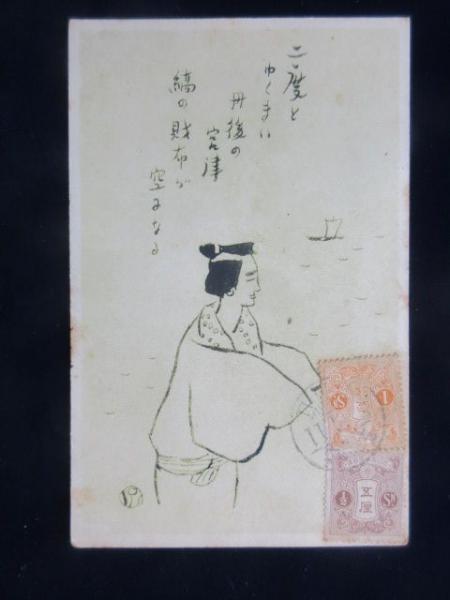 二度と
ゆくまい
丹後の
宮津
縞の財布が
空になる
1
Sn
11
½
五厘
Sn